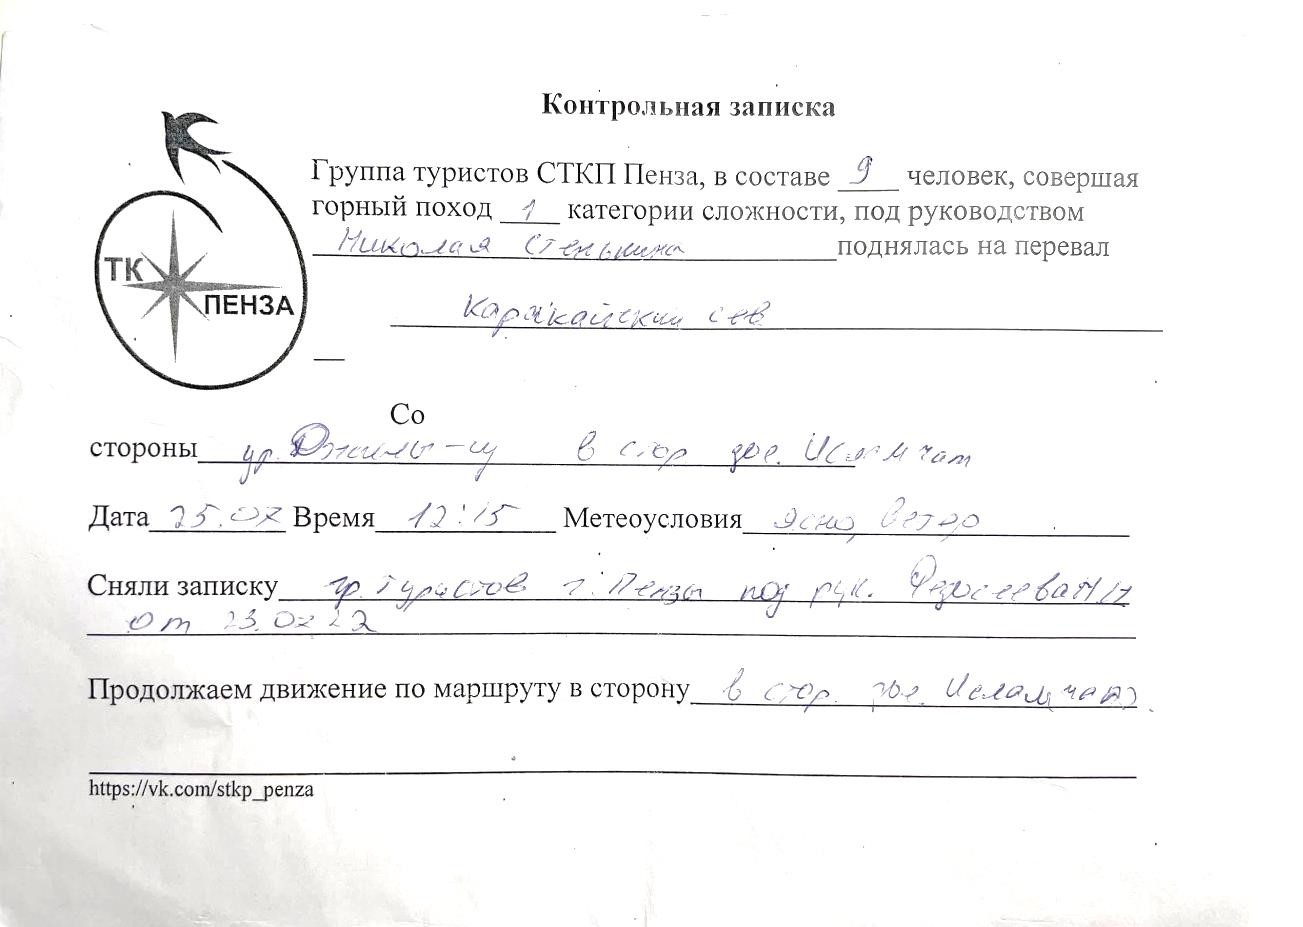 Контрольная записка
Группа туристов СТКП Пенза, в составе 9 человек, совершая
горный поход 1 категории сложности, под руководством
Николая Стенькина поднялась на перевал
ТК
ПЕНЗА
Каракайский сев
Со
стороны ур. Джилы-су в стор дол. Исламчат
Дата 25.07 Время 12:15 Метеоусловия Ясно, ветер
Сняли записку гр. туристов г. Пензы под рук. Федосеева
от 23.07 22
Продолжаем движение по маршруту в сторону в стор. дол. Исламчат
https://vk.com/stkp_penza